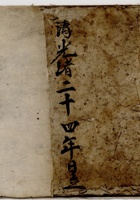 清光緒二十四年呈